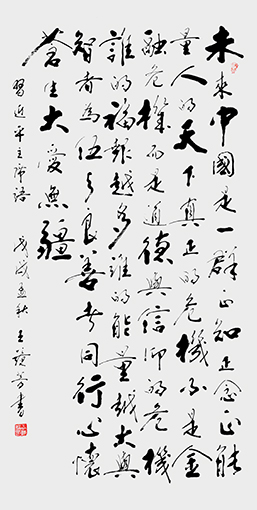 未來中國是一群正知正念正能
量人的天下真正的危機不是金
融危機而是道德與信仰的危機
誰的福報越多誰的能量越大與
智者為伍与良善者同行心懷
蒼生大愛無疆
習近平主席語 戊戌孟秋 王芳書